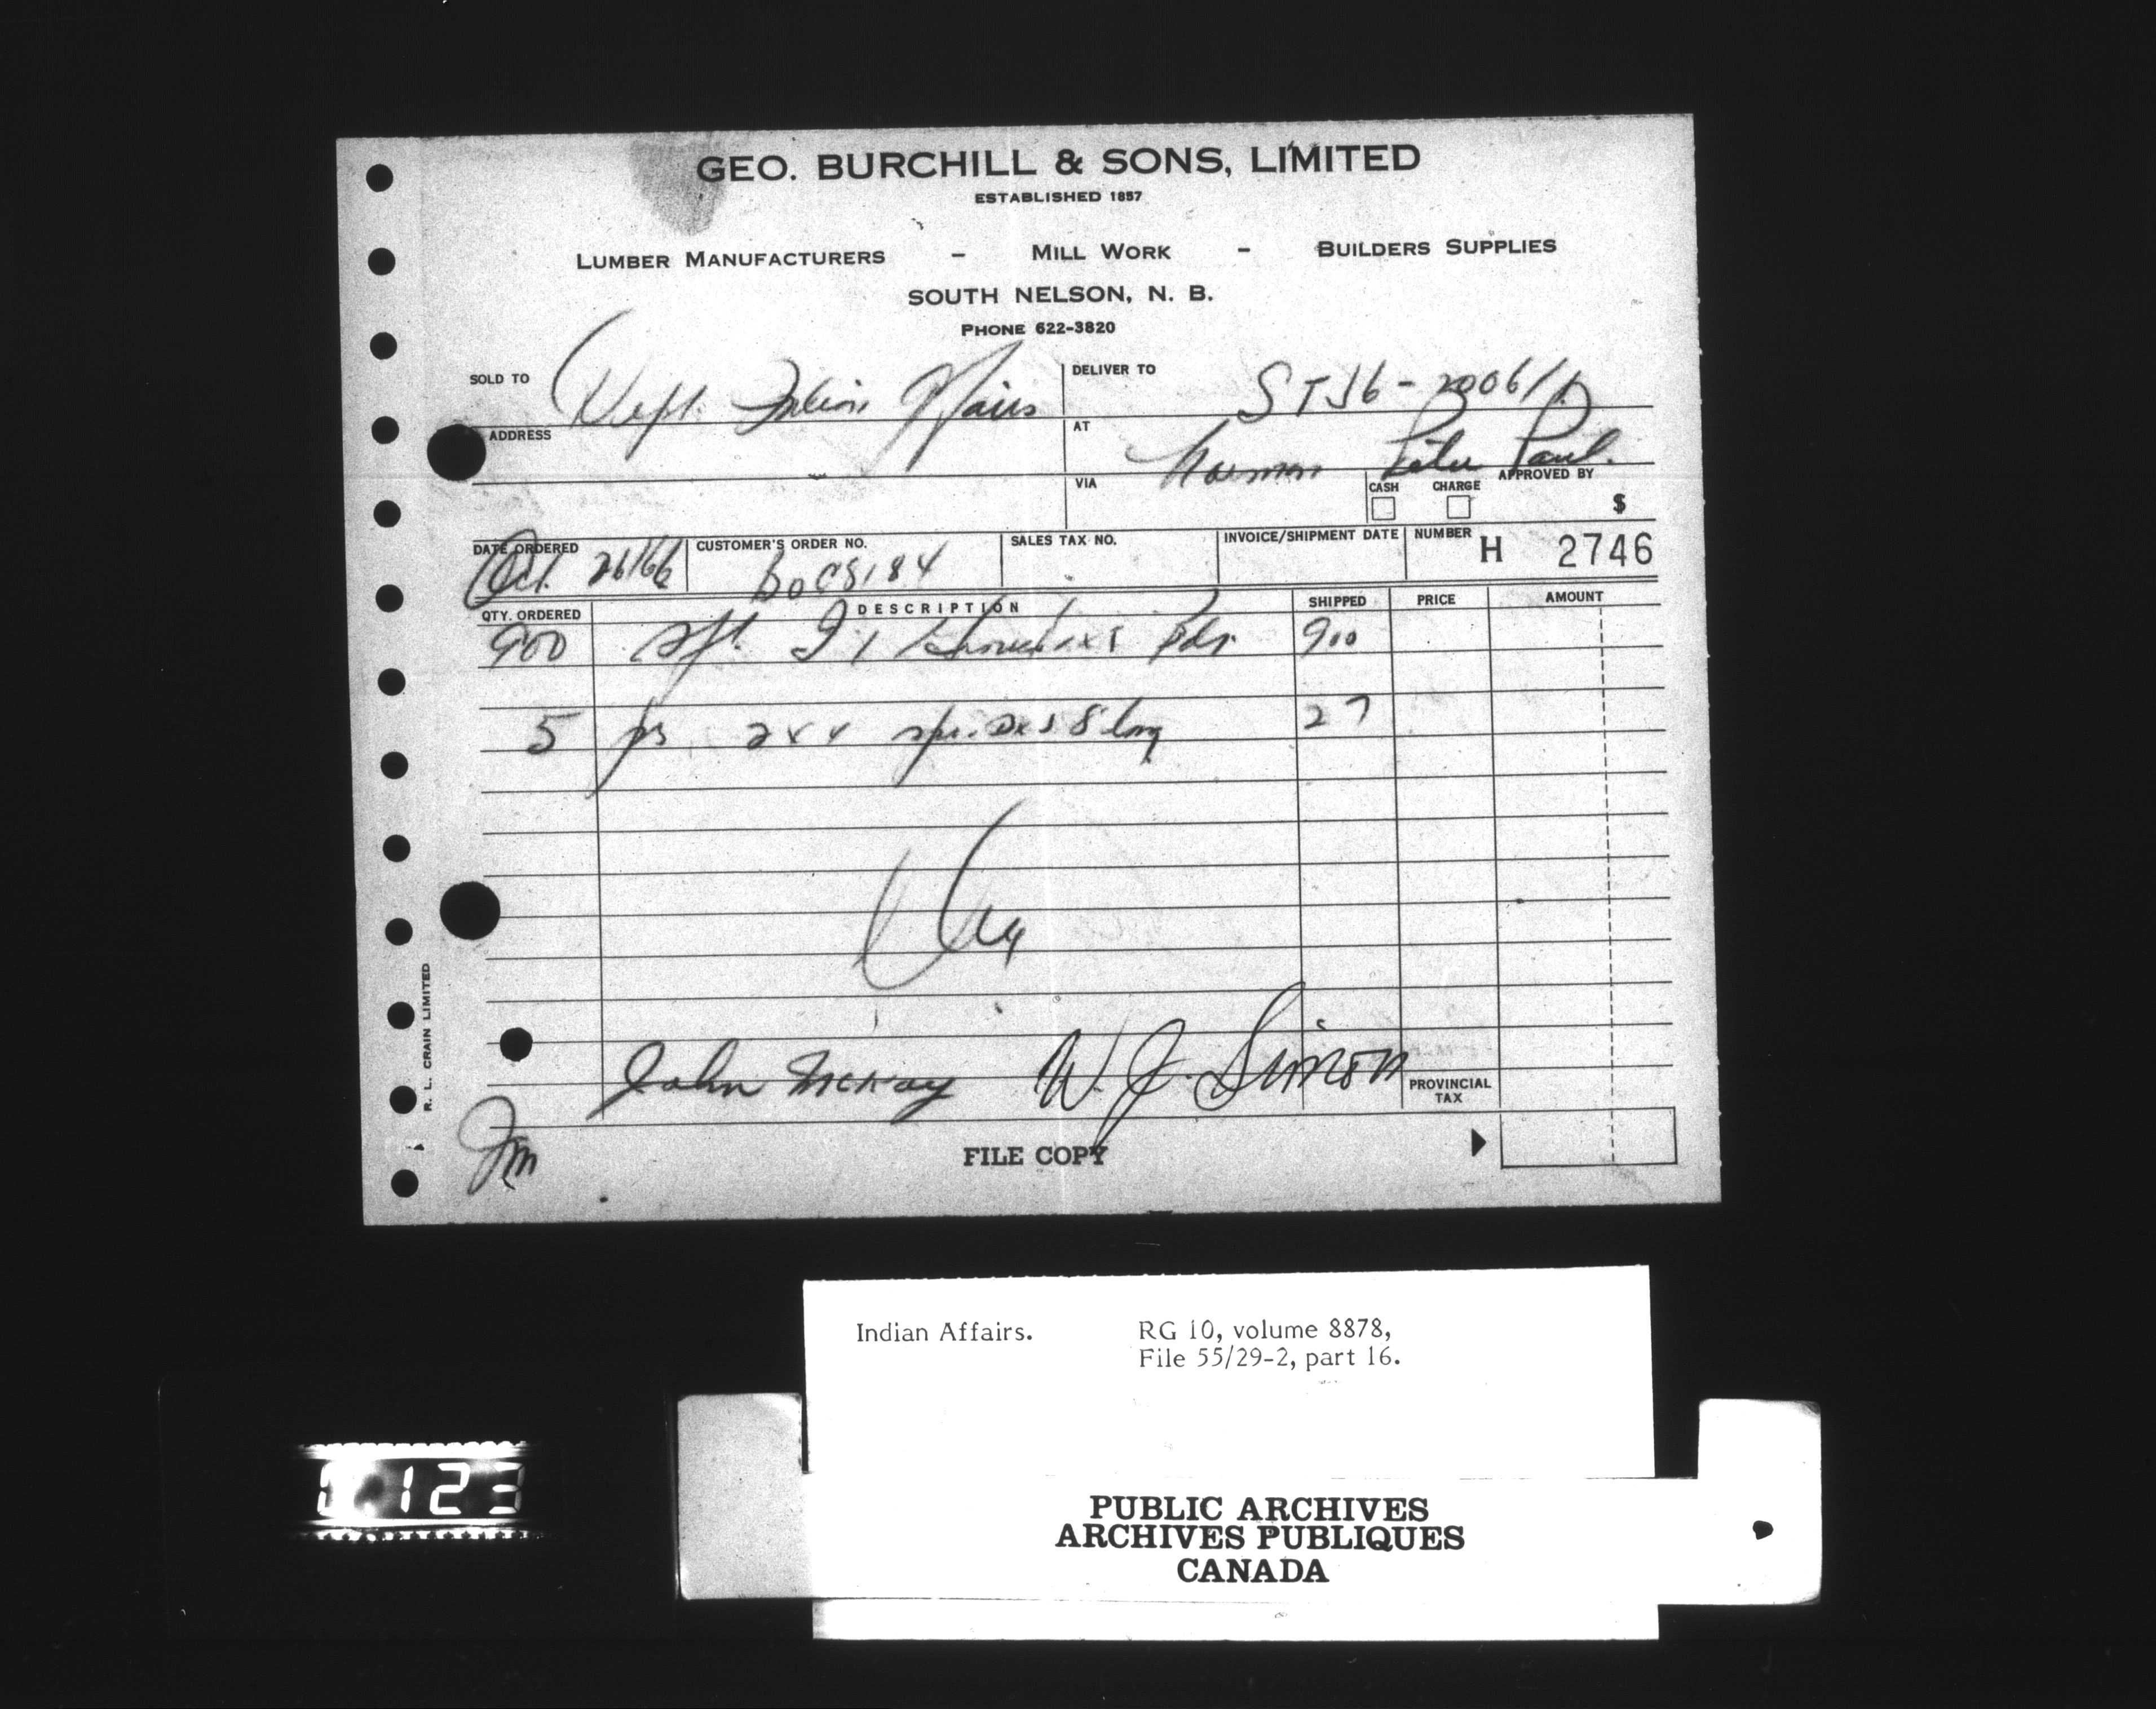 GEO. BURCHILL & SONS, LIMITED
ESTABLISHED 1857
LUMBER MANUFACTURERS - MILL WORK - BUILDERS SUPPLIES
SOUTH NELSON, N. B.
PHONE 622-3820
SOLD TO Dept. Indian Affairs DELIVER TO
ADDRESS AT Norman Peter Paul.
VIA CASH CHARGE APPROVED BY
$
DATE ORDERED CUSTOMER'S ORDER NO. SALES TAX NO. INVOICE/SHIPMENT DATE NUMBER H 2746
Oct. 26/66
QTY. ORDERED DESCRIPTION SHIPPED PRICE AMOUNT
900 900
5 pcs 2 x 4 8' long 27
John McKay W. J. Simon
PROVINCIAL
TAX
Jm
FILE COPY
R. L. CRAIN LIMITED
Indian Affairs. RG 10, volume 8878,
File 55/29-2, part 16.
123
PUBLIC ARCHIVES
ARCHIVES PUBLIQUES
CANADA